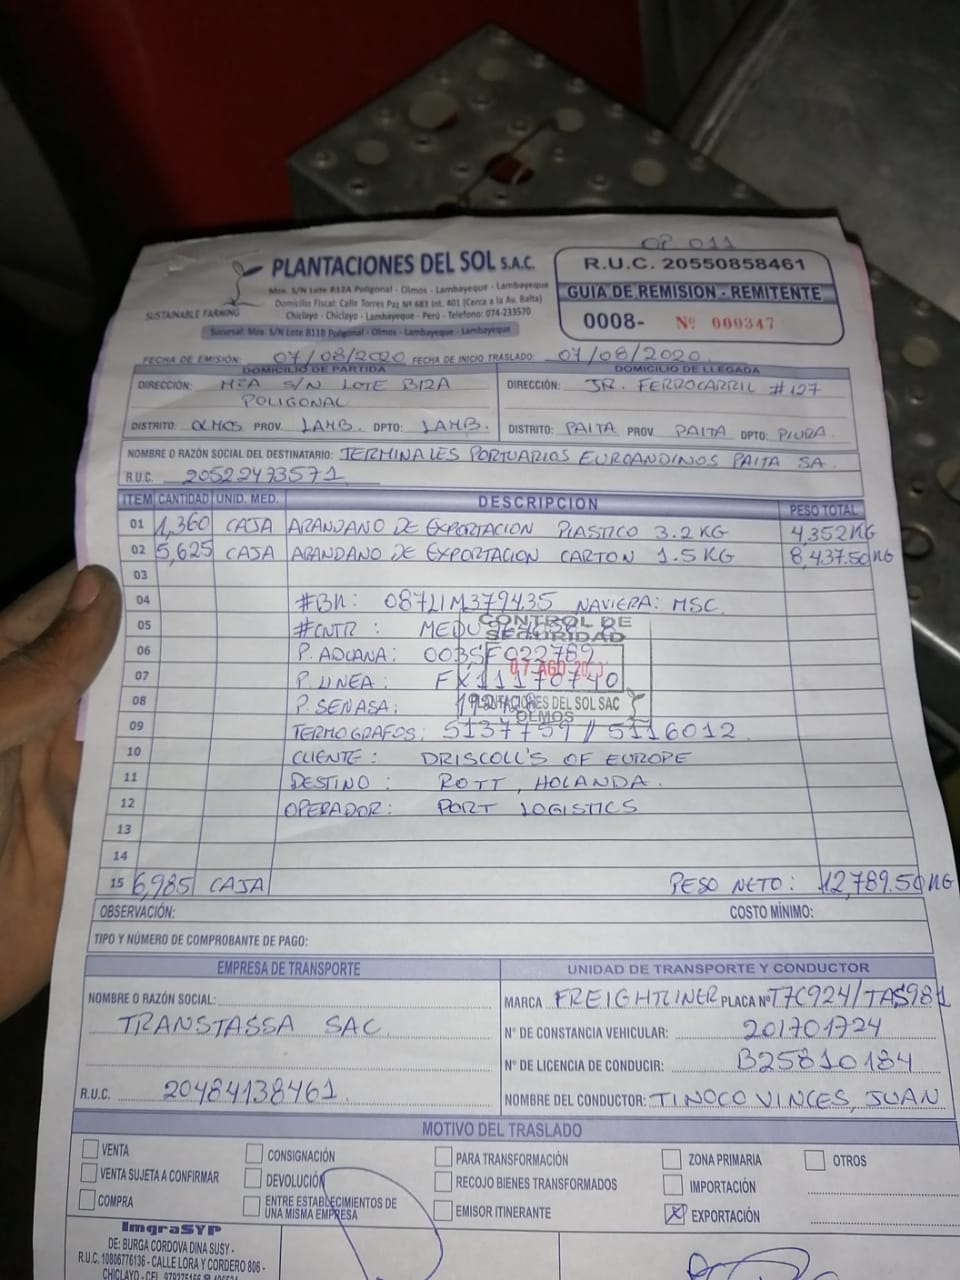 OP 011
PLANTACIONES DEL SOL S.A.C.
Mza. S/N Lote B12A Poligonal - Olmos - Lambayeque - Lambayeque
Domicilio Fiscal: Calle Torres Paz Nº 681 Int. 401 (Cerca a la Av. Balta)
Chiclayo - Chiclayo - Lambayeque - Perú - Telefono: 074-233570
SUSTAINABLE FARMING
Sucursal: Mza. S/N Lote B11B Poligonal - Olmos - Lambayeque - Lambayeque
R.U.C. 20550858461
GUIA DE REMISION - REMITENTE
0008- Nº 000347
FECHA DE EMISIÓN: 07/08/2020 FECHA DE INICIO TRASLADO: 07/08/2020
DOMICILIO DE PARTIDA
DIRECCIÓN: MZA S/N LOTE B12A
POLIGONAL
DISTRITO: OLMOS PROV. LAMB. DPTO: LAMB.
DOMICILIO DE LLEGADA
DIRECCIÓN: JR. FERROCARRIL #127
DISTRITO: PAITA PROV. PAITA DPTO: PIURA
NOMBRE O RAZÓN SOCIAL DEL DESTINATARIO: TERMINALES PORTUARIOS EUROANDINOS PAITA SA.
R.U.C. 20522473571
ITEM CANTIDAD UNID. MED. DESCRIPCION PESO TOTAL
01 1,360 CAJA ARANDANO DE EXPORTACION PLASTICO 3.2 KG 4,352 KG
02 5,625 CAJA ARANDANO DE EXPORTACION CARTON 1.5 KG 8,437.50 KG
03
04 #BK: 087LIM379435 NAVIERA: MSC.
05 #CNTR: MEDU
06 P. ADUANA: 003SF022789
07 P. LINEA: FX11170740
08 P. SENASA:
09 TERMOGRAFOS: 5137759 // 5116012
10 CLIENTE: DRISCOLL'S OF EUROPE
11 DESTINO: ROTT, HOLANDA.
12 OPERADOR: PORT LOGISTICS
13
14
15 6,985 CAJA PESO NETO: 12,789.50 KG
CONTROL DE
SEGURIDAD
07 AGO 20
PLANTACIONES DEL SOL SAC
OLMOS
OBSERVACIÓN: COSTO MÍNIMO:
TIPO Y NÚMERO DE COMPROBANTE DE PAGO:
EMPRESA DE TRANSPORTE
NOMBRE O RAZÓN SOCIAL:
TRANSTASSA SAC
R.U.C. 20484138461
UNIDAD DE TRANSPORTE Y CONDUCTOR
MARCA FREIGHTLINER PLACA Nº T7C924/TAS981
Nº DE CONSTANCIA VEHICULAR: 201701724
Nº DE LICENCIA DE CONDUCIR: B25810184
NOMBRE DEL CONDUCTOR: TINOCO VINCES, JUAN
MOTIVO DEL TRASLADO
VENTA CONSIGNACIÓN PARA TRANSFORMACIÓN ZONA PRIMARIA OTROS
VENTA SUJETA A CONFIRMAR DEVOLUCIÓN RECOJO BIENES TRANSFORMADOS IMPORTACIÓN
COMPRA ENTRE ESTABLECIMIENTOS DE
UNA MISMA EMPRESA EMISOR ITINERANTE X EXPORTACIÓN
ImgraSYP
DE: BURGA CORDOVA DINA SUSY -
R.U.C. 10806776136 - CALLE LORA Y CORDERO 806 -
CHICLAYO - CEL.